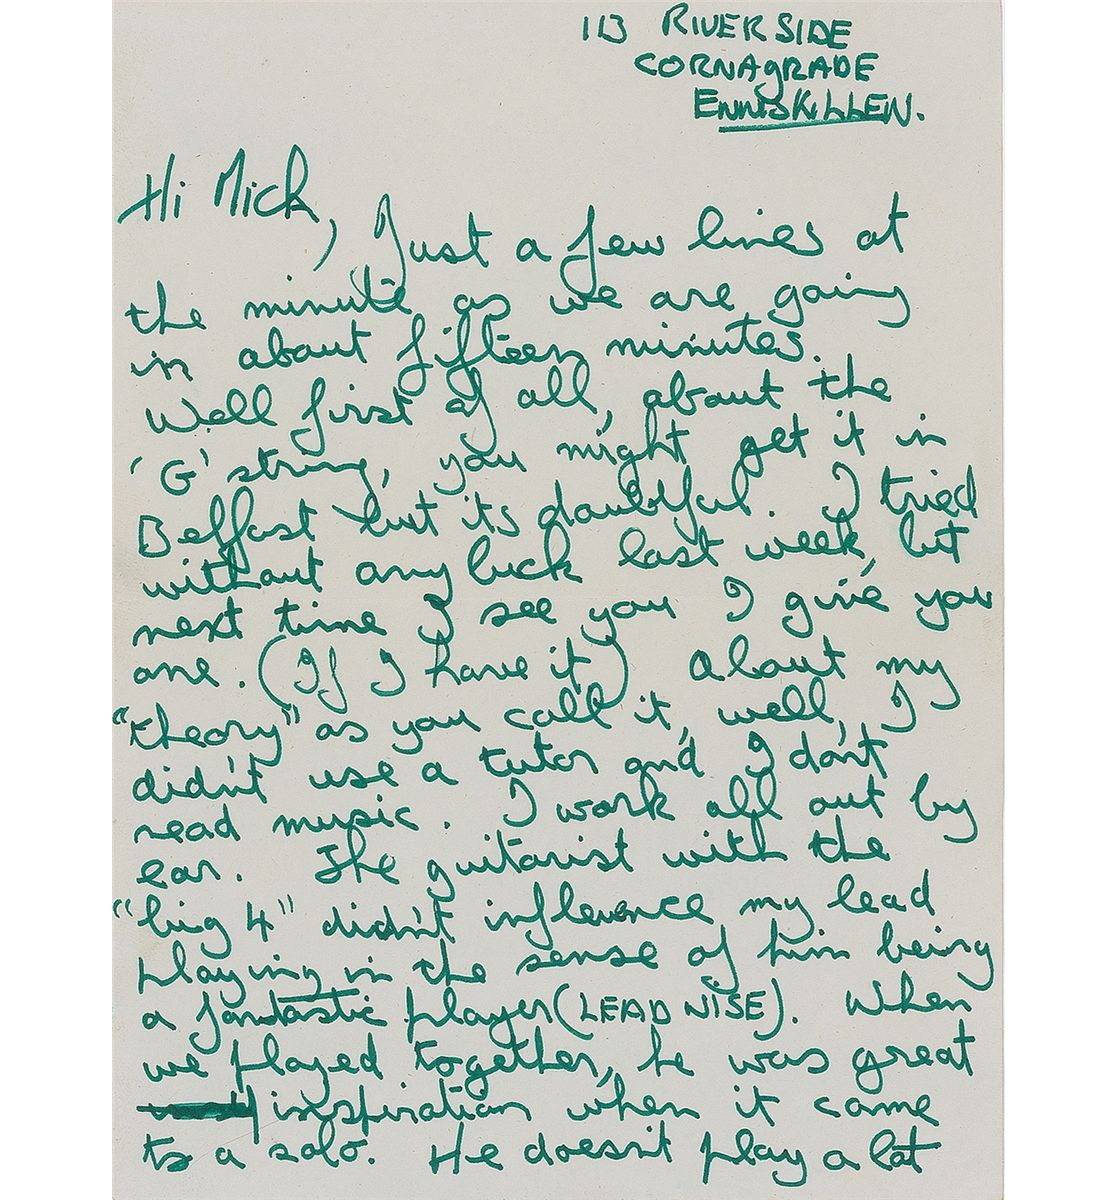 113 RIVERSIDE
CORNAGRADE
ENNISKILLEN.
Hi Mick,
Just a few lines at
the minute as we are going
in about fifteen minutes.
Well first of all, about the
'G' string, you might get it in
Belfast but its doubtful. I tried
without any luck last week, but
next time I see you I give you
one. (If I have it) About my
"theory" as you call it, well, I
didn't use a tutor and I don't
read music. I work all out by
ear. The guitarist with the
"big 4" didn't influence my lead
playing in the sense of him being
a fantastic player (LEAD WISE). When
we played together, he was great
inspiration when it came
to a solo. He doesn't play a lot